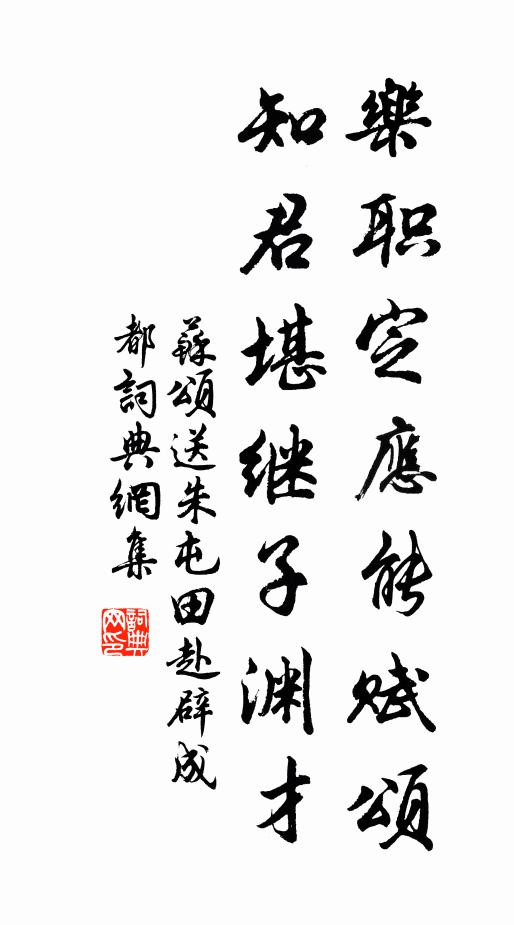 樂职定應能赋頌
知君堪継子渊才
蘇頌送朱屯田赴辟成
都詞典網集
詞典
网印